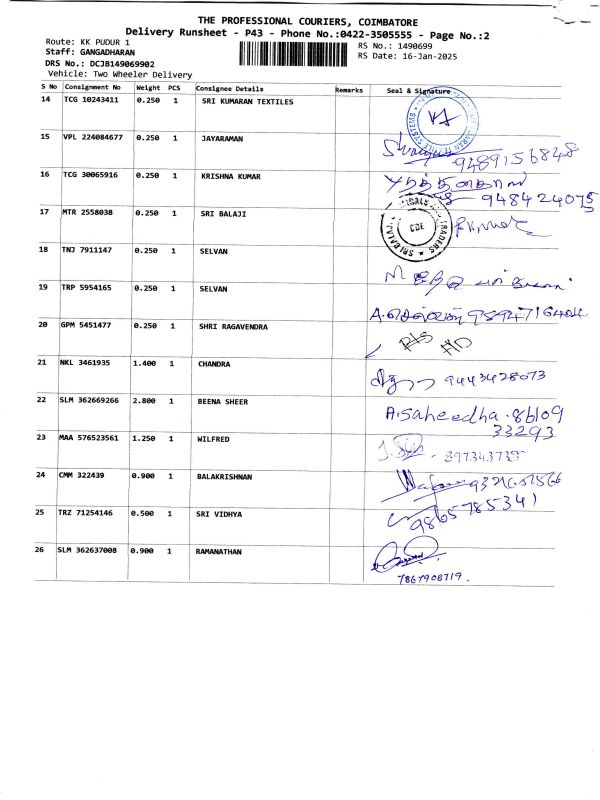 THE PROFESSIONAL COURIERS, COIMBATORE
Delivery Runsheet - P43 - Phone No.:0422-3505555 - Page No.:2
Route: KK PUDUR 1
RS No.: 1490699
Staff: GANGADHARAN
RS Date: 16-Jan-2025
DRS No.: DCJB149069902
Vehicle: Two Wheeler Delivery
S No Consignment No Weight PCS Consignee Details Remarks Seal & Signature
14 TCG 10243411 0.250 1 SRI KUMARAN TEXTILES
15 VPL 224084677 0.250 1 JAYARAMAN 9489156848
16 TCG 30065916 0.250 1 KRISHNA KUMAR 948424075
17 MTR 2558038 0.250 1 SRI BALAJI CBE
18 TNJ 7911147 0.250 1 SELVAN
19 TRP 5954165 0.250 1 SELVAN
20 GPM 5451477 0.250 1 SHRI RAGAVENDRA
21 NKL 3461935 1.400 1 CHANDRA 9443428073
22 SLM 362669266 2.800 1 BEENA SHEER A.Saheedha. 86109
33293
23 MAA 576523561 1.250 1 WILFRED
24 CMM 322439 0.900 1 BALAKRISHNAN
25 TRZ 71254146 0.500 1 SRI VIDHYA 9865785341
26 SLM 362637008 0.900 1 RAMANATHAN
7867908719.